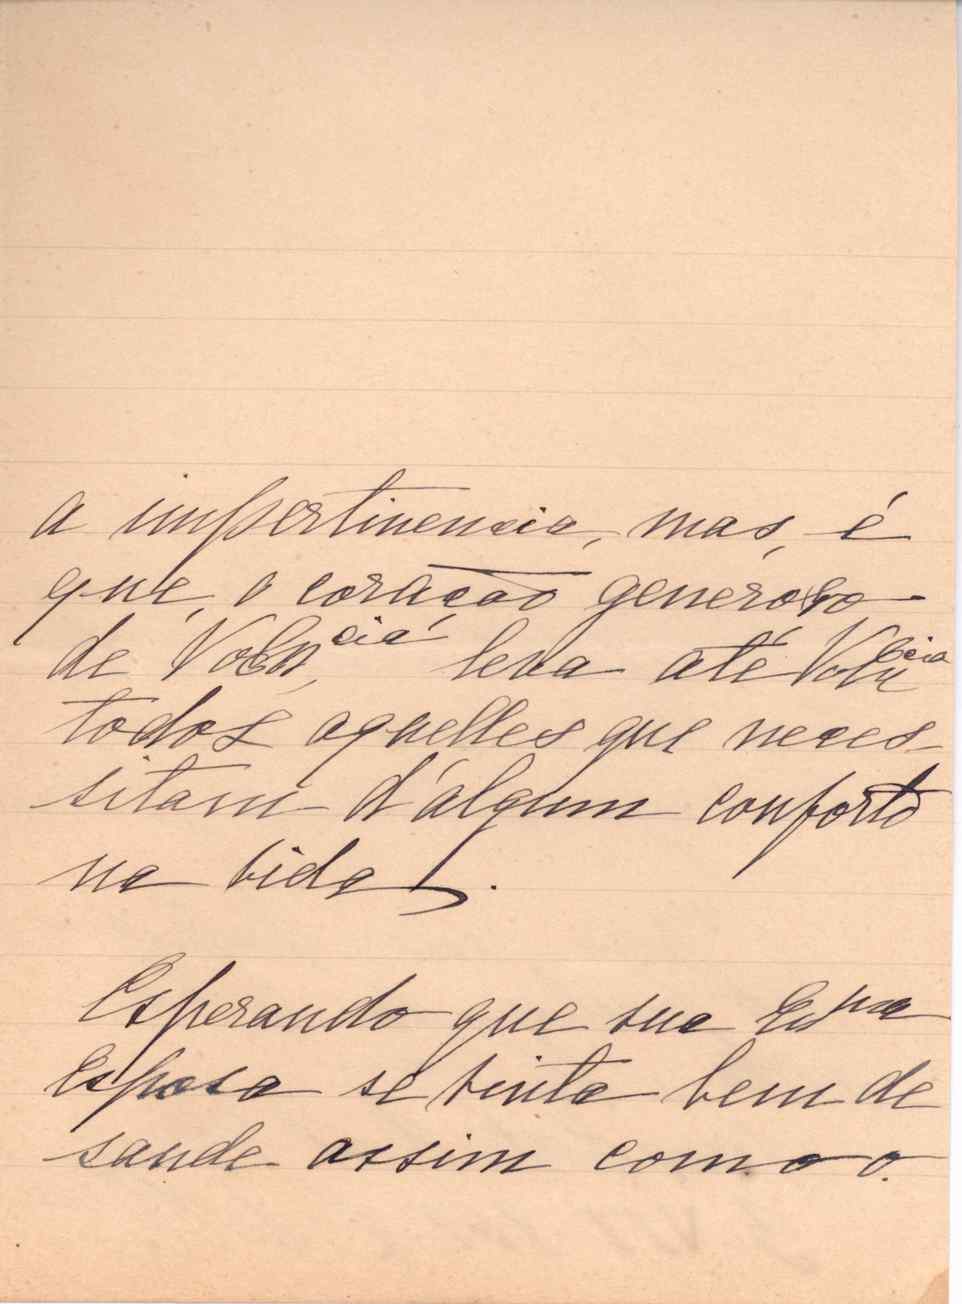 a impertinencia, mas, é
que, o coração generoso
de V. Ex.cia, leva até V. Ex.cia
todos aquelles que neces-
sitam d'álgum conforto
na vida.
Esperando que sua Exma
Esposa se sinta bem de
saude assim como o